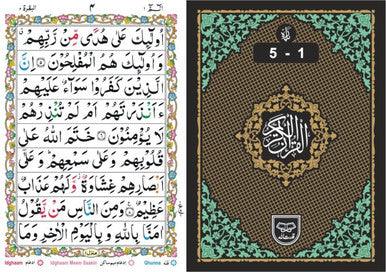 الٓمّٓ ١ ٤ البقرة ٢
اُولٰٓئِكَ عَلٰى هُدًى مِّنْ رَّبِّهِمْ ۗ
وَاُولٰٓئِكَ هُمُ الْمُفْلِحُوْنَ ۝ اِنَّ
الَّذِيْنَ كَفَرُوْا سَوَآءٌ عَلَيْهِمْ
ءَاَنْذَرْتَهُمْ اَمْ لَمْ تُنْذِرْهُمْ
لَا يُؤْمِنُوْنَ ۝ خَتَمَ اللّٰهُ عَلٰى
قُلُوْبِهِمْ وَعَلٰى سَمْعِهِمْ ۗ وَعَلٰٓى
اَبْصَارِهِمْ غِشَاوَةٌ ۖ وَّلَهُمْ عَذَابٌ
عَظِيْمٌ ۝ وَمِنَ النَّاسِ مَنْ يَّقُوْلُ
اٰمَنَّا بِاللّٰهِ وَبِالْيَوْمِ الْاٰخِرِ وَمَا
Idghaam ادغام Idghaam Meem Saakin ادغام میم ساکن Ghunna غنہ
5 - 1
القرآن الكريم